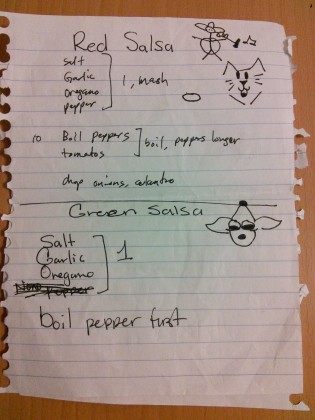 Red Salsa
Salt
Garlic
Oregano
pepper
1, mash
10 Bell peppers
tomatos
boil, peppers longer
chop onions, celantro
Green Salsa
Salt
Garlic
Oregano
1
boil pepper first